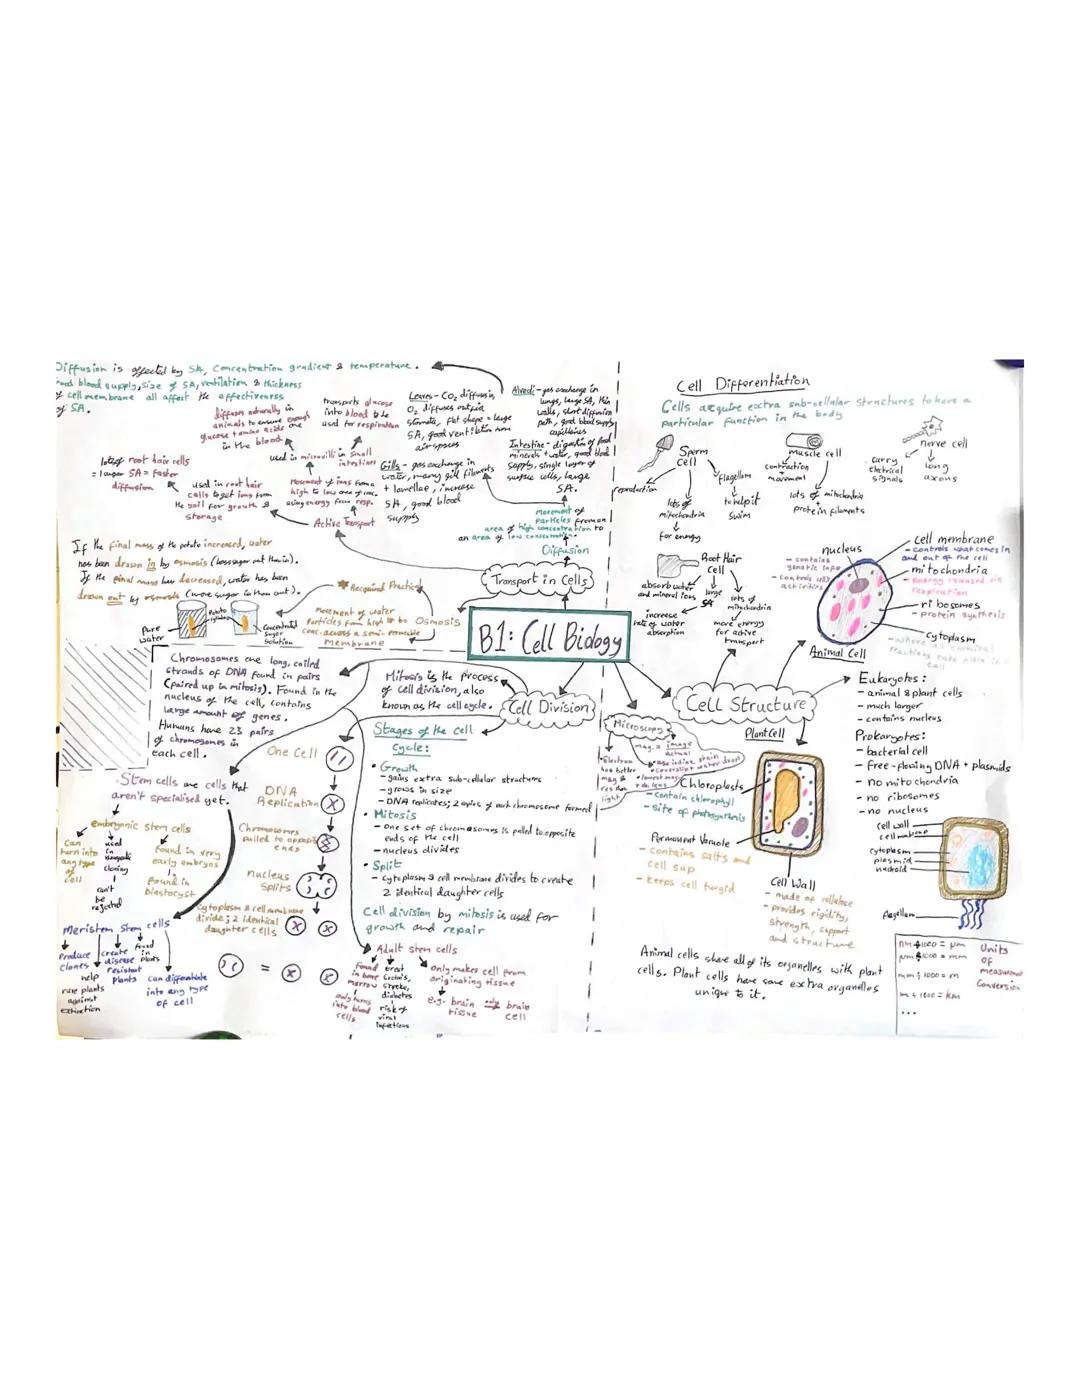 Diffusion is affected by SA, Concentration gradient & temperature.
blood supply, size of SA, ventilation & thickness
of cell membrane all affect the effectiveness
of SA.
diffuses naturally in
animals to ensure enough
glucose + amino acids are
in the blood
transports glucose
into blood to be
used for respiration
used in microvilli in small
intestines
lots of root hair cells
= larger SA = faster
diffusion
used in root hair
cells to get ions from
the soil for growth &
storage
Movement of ions from a
high to low area of conc.
using energy from resp.
Active Transport
Leaves - CO₂ diffuses in,
O₂ diffuses out via
stomata, flat shape = large
SA, good ventilation from
air spaces
Gills - gas exchange in
water, many gill filaments
+ lamellae, increase
SA, good blood
supply
Alveoli - gas exchange in
lungs, large SA, thin
walls, short diffusion
path, good blood supply
capillaries
Intestine - digestion of food
minerals + water, good blood
supply, single layer of
surface cells, large
SA.
movement of
particles from an
area of high concentration to
an area of low concentration.
Diffusion
If the final mass of the potato increased, water
has been drawn in by osmosis (less sugar out than in).
If the final mass has decreased, water has been
drawn out by osmosis (more sugar in than out).
Required Practical
Pure
water
Potato
cylinders
Concentrated
Sugar
Solution
Movement of water
Particles from high to lo
conc. across a semi-permeable
Membrane
Osmosis
Transport in Cells
B1: Cell Biology
Cell Differentiation
Cells acquire extra sub-cellular structures to have a
particular function in the body
Sperm
cell
reproduction
lots of
mitochondria
for energy
flagellum
to help it
swim
muscle cell
contraction
+
movement
lots of mitochondria
+
protein filaments
nerve cell
carry
eletrical
signals
long
axons
Root Hair
Cell
absorb water
and mineral ions
large
SA
increase
rate of water
absorption
lots of
mitochondria
more energy
for active
transport
nucleus
- contains
genetic info
- controls cell
activities
cell membrane
- controls what comes in
and out of the cell
mitochondria
- energy released via
respiration
ribosomes
- protein synthesis
cytoplasm
- where all chemical
reactions take place in a
cell
Animal Cell
Chromosomes are long, coiled
strands of DNA found in pairs
(paired up in mitosis). Found in the
nucleus of the cell, contains
large amount of genes.
Humans have 23 pairs
of chromosomes in
each cell.
Mitosis is the process
of cell division, also
known as the cell cycle.
Cell Division
Stages of the cell
Cycle:
• Growth
- gains extra sub-cellular structures
- grows in size
- DNA replicates; 2 copies of each chromosome formed
• Mitosis
- One set of chromosomes is pulled to opposite
ends of the cell
- nucleus divides
• Split
- cytoplasm & cell membrane divides to create
2 identical daughter cells
Cell division by mitosis is used for
growth and repair
One Cell
DNA
Replication
Chromosomes
pulled to opposite
ends
nucleus
Splits
Cytoplasm & cell membrane
divide; 2 identical
daughter cells
=
Stem cells are cells that
aren't specialised yet.
embryonic stem cells
can
turn into
any type
of
cell
used
in
therapeutic
cloning
can't
be
rejected
found in very
early embryos
found in
blastocyst
Meristem Stem cells
Produce
clones
help
rare plants
against
extinction
create
disease
resistant
plants
found
in
plants
can differentiate
into any type
of cell
Adult stem cells
found
in bone
marrow
only turns
into blood
cells
treat
Crohn's,
stroke,
diabetes
risk of
viral
infections
only makes cell from
originating tissue
e.g. brain
tissue
only
brain
cell
Microscopy
mag. = image
actual
• Electron
has better
mag &
res than
light
• use iodine stain
• coverslip + water drop
• lowest mag
Cell Structure
Plant Cell
Chloroplasts
- contain chlorophyll
- site of photosynthesis
Permanent Vacuole
- contains salts and
cell sap
- keeps cell turgid
Cell Wall
- made of cellulose
- provides rigidity,
strength, support
and structure
Eukaryotes:
- animal & plant cells
- much larger
- contains nucleus
Prokaryotes:
- bacterial cell
- free-flowing DNA + plasmids
- no mitochondria
- no ribosomes
- no nucleus
cell wall
cell membrane
cytoplasm
plasmid
nucleoid
flagellum
Animal cells share all of its organelles with plant
cells. Plant cells have some extra organelles
unique to it.
nm ÷ 1000 = µm
µm ÷ 1000 = mm
mm ÷ 1000 = m
m ÷ 1000 = km
...
Units
of
measurement
Conversion